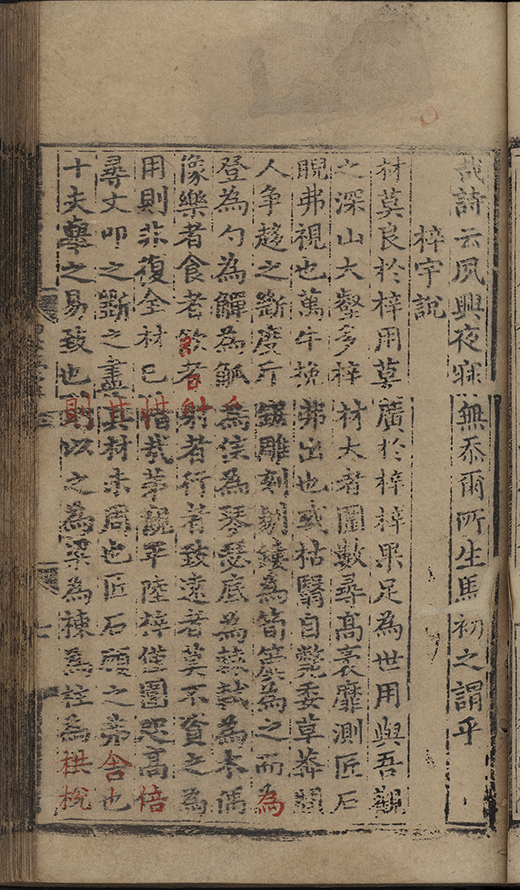 哉詩云夙興夜寐無忝爾所生馬初之謂乎
梓宇說
材莫良於梓用莫廣於梓梓果足為世用與吾觀
之深山大壑多梓材大者圍數尋高袤靡測匠石
睨弗視也萬牛挽弗出也或枯翳自斃委草莽間
人爭趍之斷度斤鋸雕刻剔鏤為筍簴為之而為
登為勺為觶為觚為柱為琴瑟底為為木偶
像樂者食者飲者射者行者致遠者莫不資之為
用則非復全材已惜哉平陸梓僅圍咫高倍
尋丈叩之斲之盡其材未周也匠石顧之弗舍也
十夫轝之易致也則以之為梁為棟為柱為栱梲
七